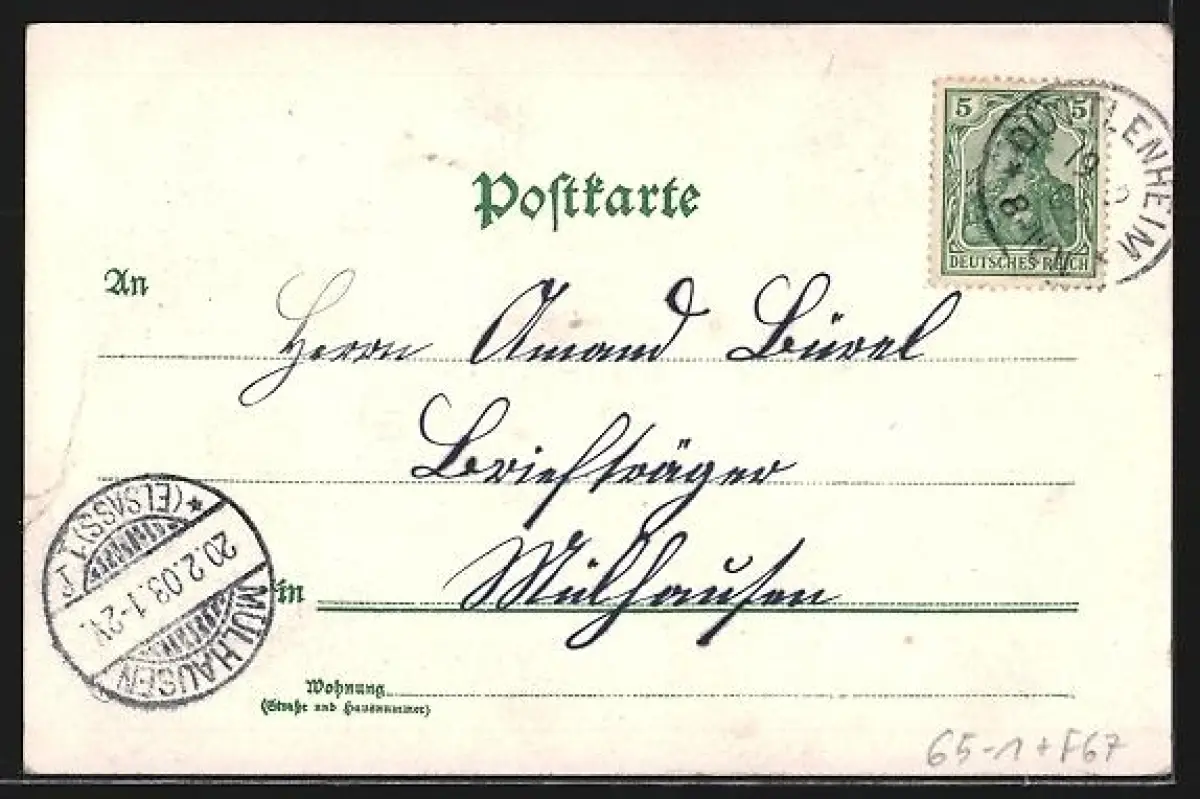 5 5
DEUTSCHES REICH
Postkarte
An
Herrn Amand Bürel
Briefträger
in Mülhausen
Wohnung
(Straße und Hausnummer)
MÜLHAUSEN
20.2.03.1-2N.
* (ELSASS) 1
65-1+F67